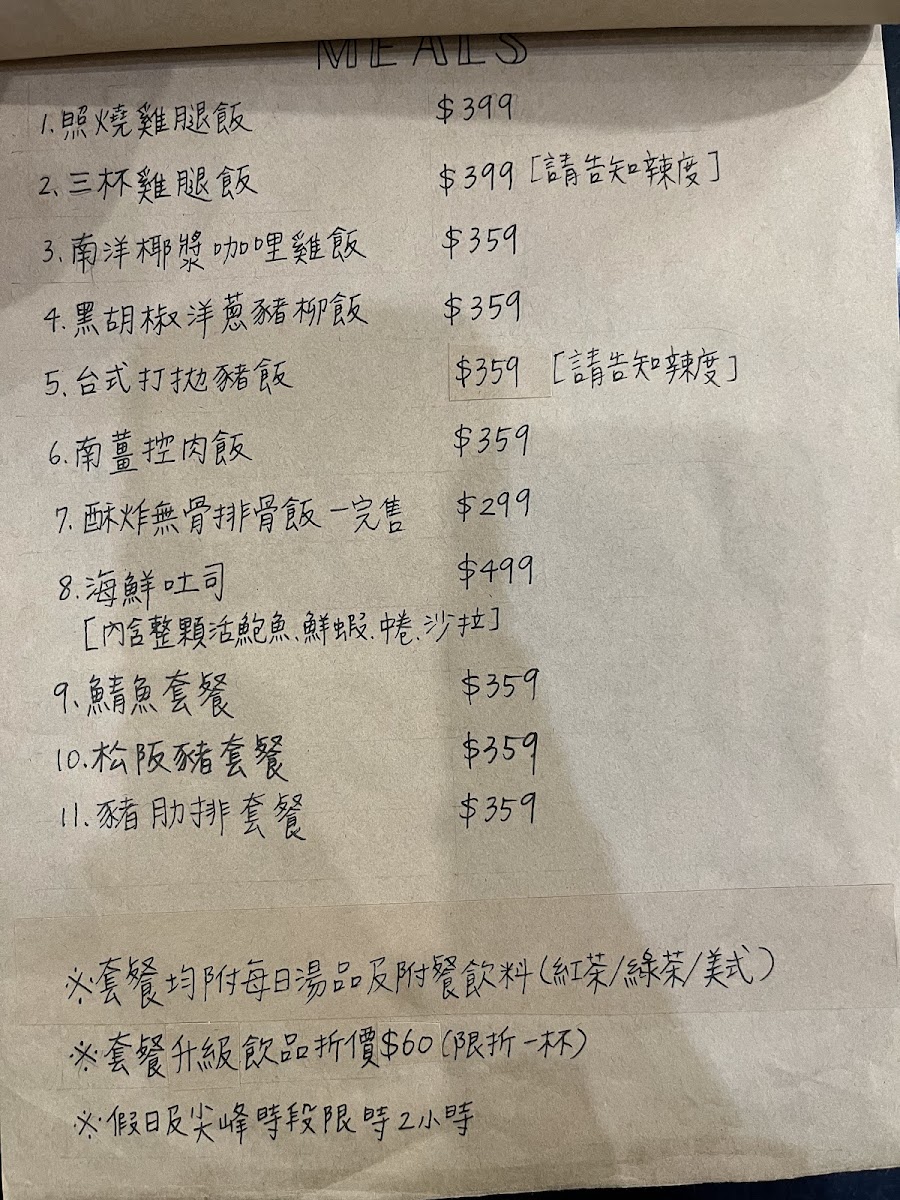 MEALS
1.照燒雞腿飯 $399
2.三杯雞腿飯 $399 [請告知辣度]
3.南洋椰漿咖哩雞飯 $359
4.黑胡椒洋蔥豬柳飯 $359
5.台式打拋豬飯 $359 [請告知辣度]
6.南薑控肉飯 $359
7.酥炸無骨排骨飯-完售 $299
8.海鮮吐司 $499
[內含整顆活鮑魚、鮮蝦、中卷、沙拉]
9.鯖魚套餐 $359
10.松阪豬套餐 $359
11.豬肋排套餐 $359
※套餐均附每日湯品及附餐飲料(紅茶/綠茶/美式)
※套餐升級飲品折價$60(限折一杯)
※假日及尖峰時段限時2小時